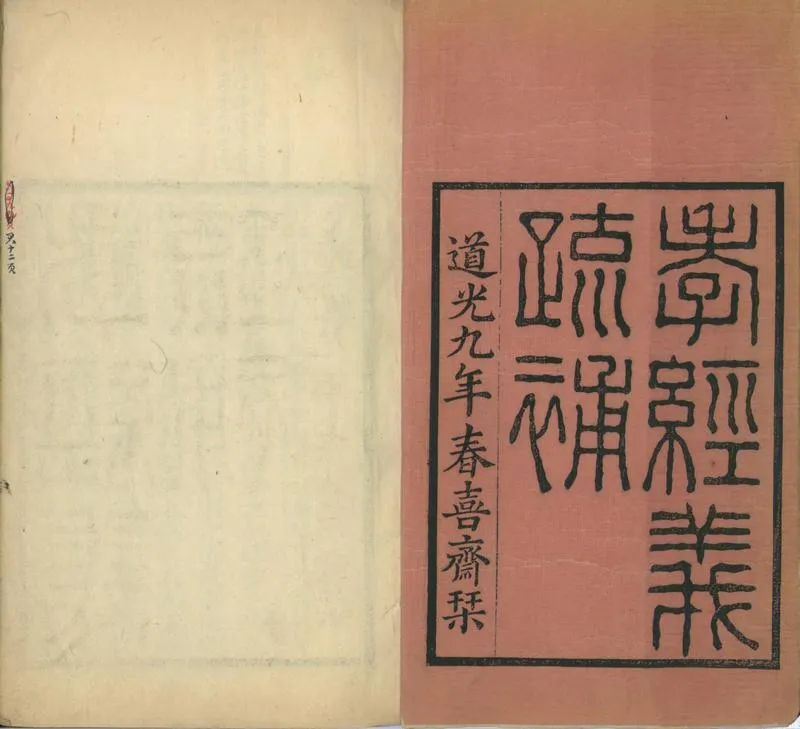 孝經義
疏補
道光九年春喜齋栞